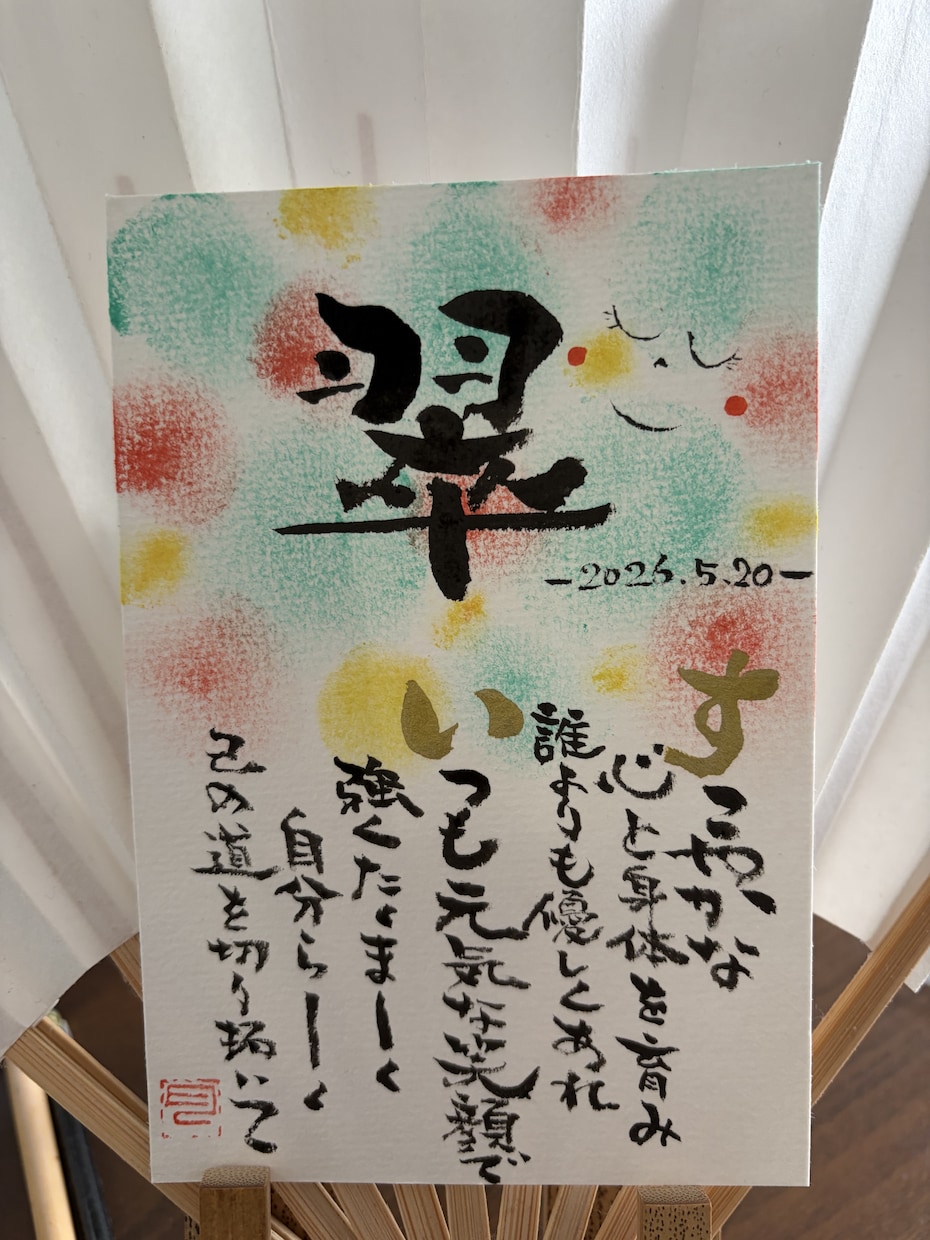 翠
-2026.5.20-
すこやかな
心と身体を育み
誰よりも優しくあれ
いつも元気な笑顔で
強くたくましく
自分らしく
己の道を切り拓いて